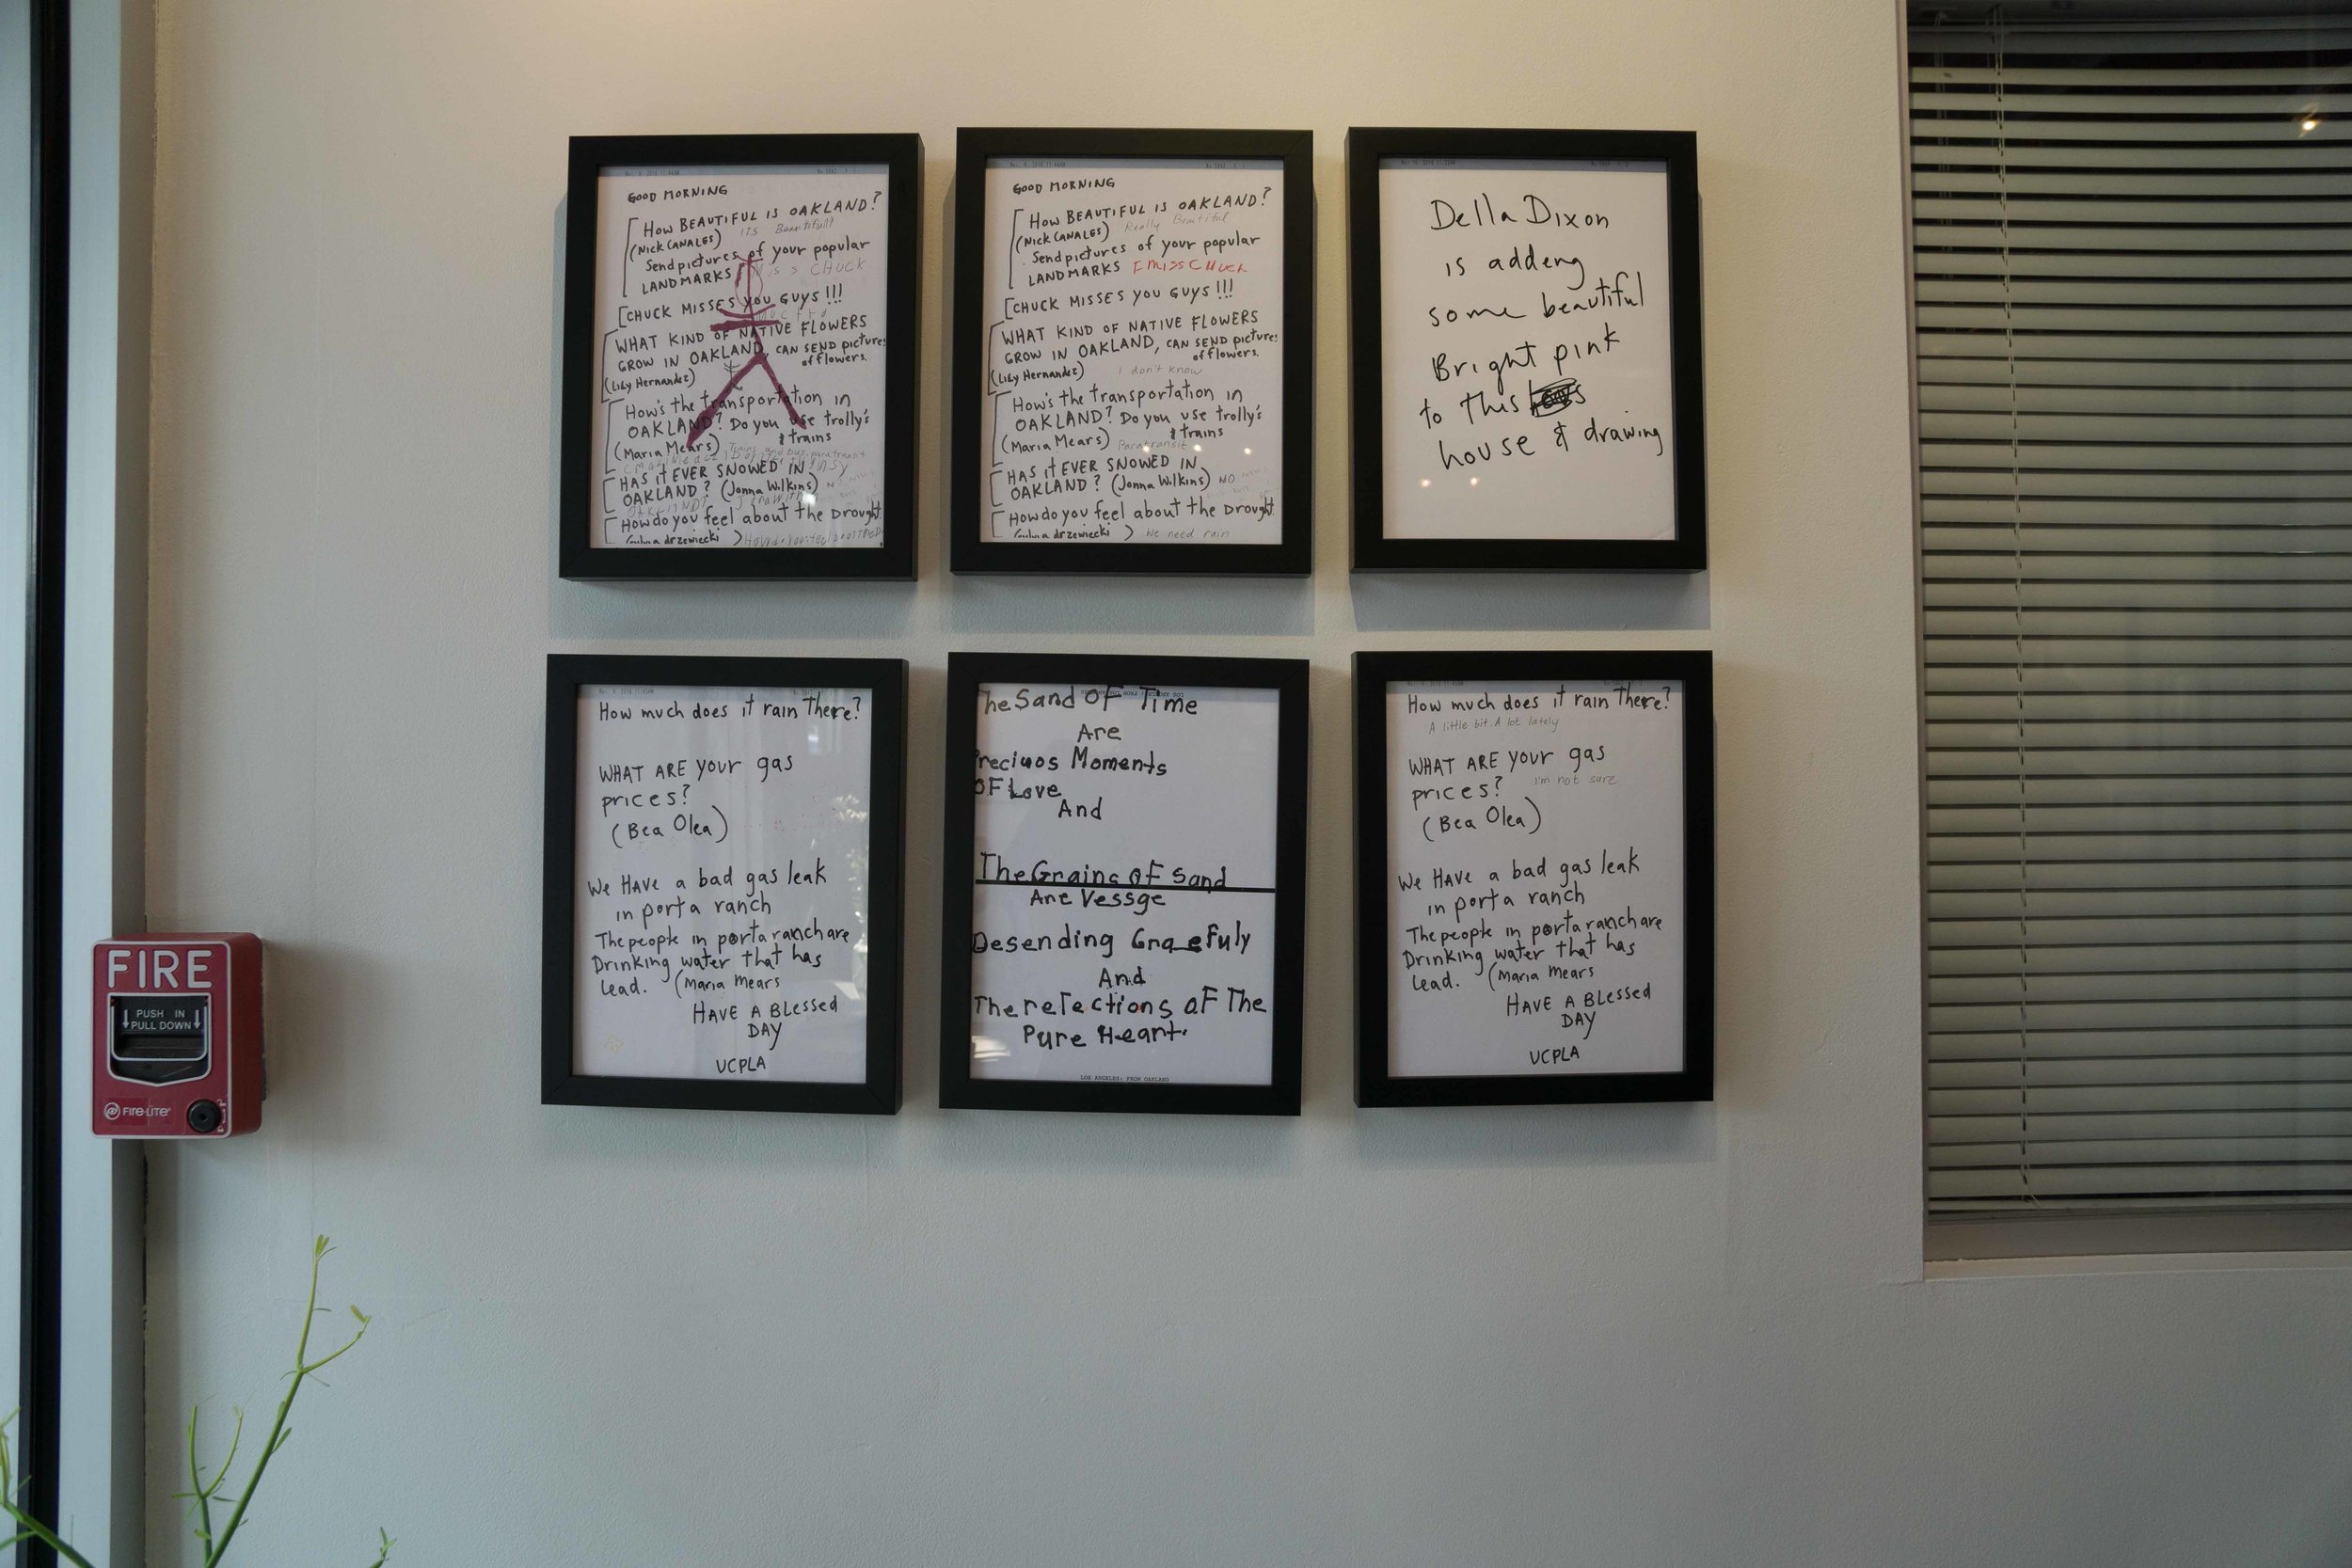 GOOD MORNING
HOW BEAUTIFUL IS OAKLAND?
(NICK CANALES) ITS Beautiful!
Send pictures of your popular
LANDMARKS miss CHUCK
[CHUCK MISSES YOU GUYS!!!
WHAT KIND OF NATIVE FLOWERS
GROW IN OAKLAND, CAN SEND pictures
of flowers.
(Lily Hernandez)
How's the transportation in
OAKLAND? Do you use trolly's
& trains
(Maria Mears)
HAS it EVER SNOWED IN
OAKLAND? (Jonna Wilkins)
How do you feel about the Drought
drzewiecki)
GOOD MORNING
HOW BEAUTIFUL IS OAKLAND?
(NICK CANALES) Really Beautiful
Send pictures of your popular
LANDMARKS I MISS CHUCK
[CHUCK MISSES YOU GUYS!!!
WHAT KIND OF NATIVE FLOWERS
GROW IN OAKLAND, CAN SEND pictures
of flowers.
(Lily Hernandez) I don't know
How's the transportation in
OAKLAND? Do you use trolly's
& trains
(Maria Mears) Paratransit
HAS it EVER SNOWED IN
OAKLAND? (Jonna Wilkins) NO
How do you feel about the Drought
drzewiecki) We need rain
Della Dixon
is addeng
some beautiful
Bright pink
to this
house & drawing
How much does it rain There?
WHAT ARE your gas
prices?
(Bea Olea)
We HAVE a bad gas leak
in porta ranch
The people in porta ranch are
Drinking water that has
lead. (Maria Mears
HAVE A BLessed
DAY
UCPLA
he Sand OF Time
Are
Preciuos Moments
OF Love
And
The Grains OF Sand
Are Vessge
Desending Gracefuly
And
The reflections OF The
Pure Heart.
LOS ANGELES: FROM OAKLAND
How much does it rain There?
A little bit. A lot lately
WHAT ARE your gas
prices? I'm not sure
(Bea Olea)
We HAVE a bad gas leak
in porta ranch
The people in porta ranch are
Drinking water that has
lead. (Maria Mears
HAVE A BLessed
DAY
UCPLA
FIRE
PUSH IN
PULL DOWN
FIRE-LITE